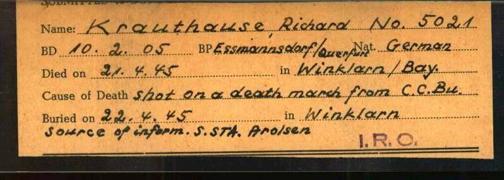 Name: Krauthause, Richard No. 5021
BD 10. 2. 05 BP Essmannsdorf/Querfurt Nat. German
Died on 21. 4. 45 in Winklarn/Bay.
Cause of Death shot on a death march from C.C.Bu.
Buried on 22. 4. 45 in Winklarn
Source of inform. S.STA. Arolsen
I.R.O.